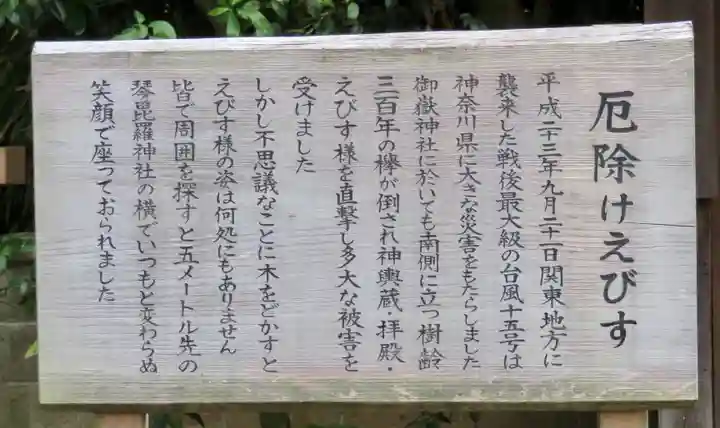 厄除けえびす
平成二十三年九月二十一日関東地方に
襲来した戦後最大級の台風十五号は
神奈川県に大きな災害をもたらしました
御嶽神社に於いても南側に立つ樹齢
三百年の欅が倒され神輿蔵・拝殿・
えびす様を直撃し多大な被害を
受けました
しかし不思議なことに木をどかすと
えびす様の姿は何処にもありません
皆で周囲を探すと五メートル先の
琴毘羅神社の横でいつもと変わらぬ
笑顔で座っておられました